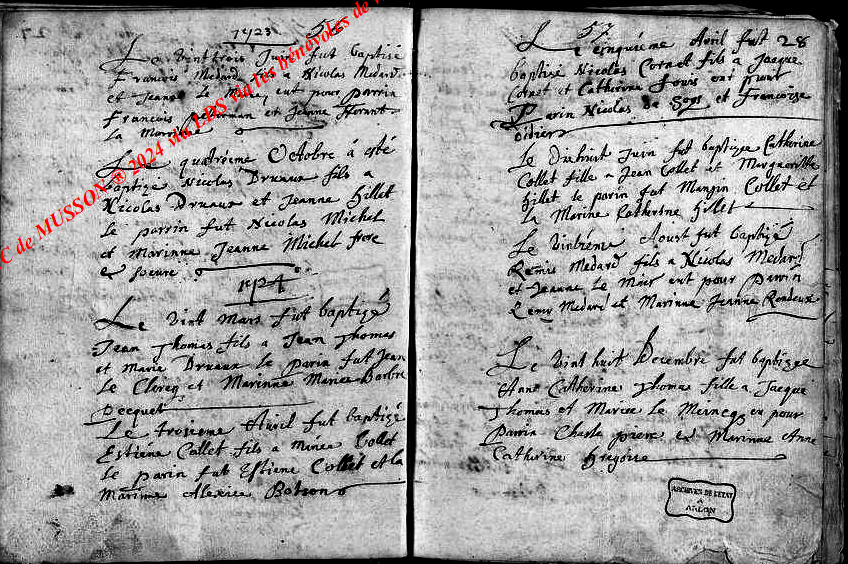 1723
Le Vinttrois Juin fut baptisé
Francois Medard fils a Nicolas Medard
et Jeanne Le Moine eut pour parrin
Francois et Jeanne
la Marrine
Le quatréeme Octobre à esté
baptizé Nicolas Druaux fils a
Nicolas Druaux et Jeanne Hillet
Le parrin fut Nicolas Michel
et Marinne Jeanne Michel frere
et soeure
1724
Le Vint Mars fut baptizé
Jean Thomas fils a Jean Thomas
et Marie Druaux Le parin fut Jean
Le Clereq et Marinne Barbre
Pecquet
Le troseme Avril fut baptizé
Estiene Collet fils a Collet
Le parin fut Estiene Collet et la
Marinne Alexice
57
28
Le cinquieme Avril fut
baptisé Nicolas Cornet fils a Jacque
Cornet et Catherine Louis ont pour
Parin Nicolas de et Francoise
Didier
Le Dixhuit Juin fut baptizee Catherine
Collet fille a Jean Collet et Margueritte
Hillet le parin fut Mangin Collet et
La Marine Catherine Hillet
Le Vintréme Aoust fut baptizé
Remis Medard fils a Nicolas Medard
et Jeanne Le Moine ont pour Parrin
Remy Medard et Marinne Jeanne
Le Vint huit Decembre fut baptizee
Anne Catherine Thomas fille a Jacque
Thomas et Marie Le pour
Parrin Charle piere et Marinne Anne
Catherine Gregoire
ARCHIVES DE L'ETAT
A
ARLON
C de MUSSON ® 2024 via LDS via les bénévoles de